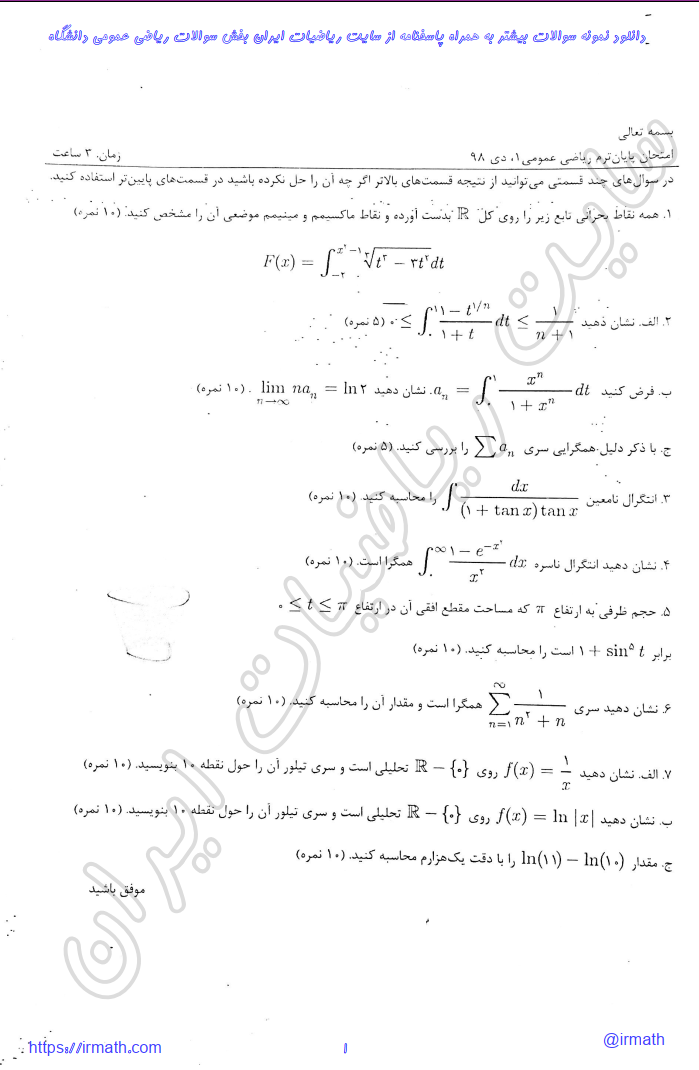 دانلود نمونه سوالات بیشتر به همراه پاسفنامه از سایت ریاضیات ایران بخش سوالات ریاضی عمومی دانشگاه
بسمه تعالی
امتحان پایان‌ترم ریاضی عمومی ۱، دی ۹۸ زمان: ۳ ساعت
در سوال‌های چند قسمتی می‌توانید از نتیجه قسمت‌های بالاتر اگر چه آن را حل نکرده باشید در قسمت‌های پایین‌تر استفاده کنید.
۱. همه نقاط بحرانی تابع زیر را روی کل ℝ بدست آورده و نقاط ماکسیمم و مینیمم موضعی آن را مشخص کنید. (۱۰ نمره)
F(x) = ∫_{−۲}^{x^۲−۱} ∛(t^۳ − ۳t^۲) dt
۲. الف. نشان دهید ۰ ≤ ∫_۰^۱ (۱ − t^{۱/n})/(۱ + t) dt ≤ ۱/(n + ۱) (۵ نمره)
ب. فرض کنید a_n = ∫_۰^۱ x^n/(۱ + x^n) dt. نشان دهید lim_{n→∞} na_n = ln ۲ . (۱۰ نمره)
ج. با ذکر دلیل همگرایی سری ∑ a_n را بررسی کنید. (۵ نمره)
۳. انتگرال نامعین ∫ dx/((۱ + tan x) tan x) را محاسبه کنید. (۱۰ نمره)
۴. نشان دهید انتگرال ناسره ∫_۰^∞ (۱ − e^{−x^۲})/x^۲ dx همگرا است. (۱۰ نمره)
۵. حجم ظرفی به ارتفاع π که مساحت مقطع افقی آن در ارتفاع ۰ ≤ t ≤ π
برابر ۱ + sin^۵ t است را محاسبه کنید. (۱۰ نمره)
۶. نشان دهید سری ∑_{n=۱}^∞ ۱/(n^۲ + n) همگرا است و مقدار آن را محاسبه کنید. (۱۰ نمره)
۷. الف. نشان دهید f(x) = ۱/x روی ℝ − {۰} تحلیلی است و سری تیلور آن را حول نقطه ۱۰ بنویسید. (۱۰ نمره)
ب. نشان دهید f(x) = ln |x| روی ℝ − {۰} تحلیلی است و سری تیلور آن را حول نقطه ۱۰ بنویسید. (۱۰ نمره)
ج. مقدار ln(۱۱) − ln(۱۰) را با دقت یک‌هزارم محاسبه کنید. (۱۰ نمره)
موفق باشید
سایت ریاضیات ایران
https://irmath.com
۱
@irmath